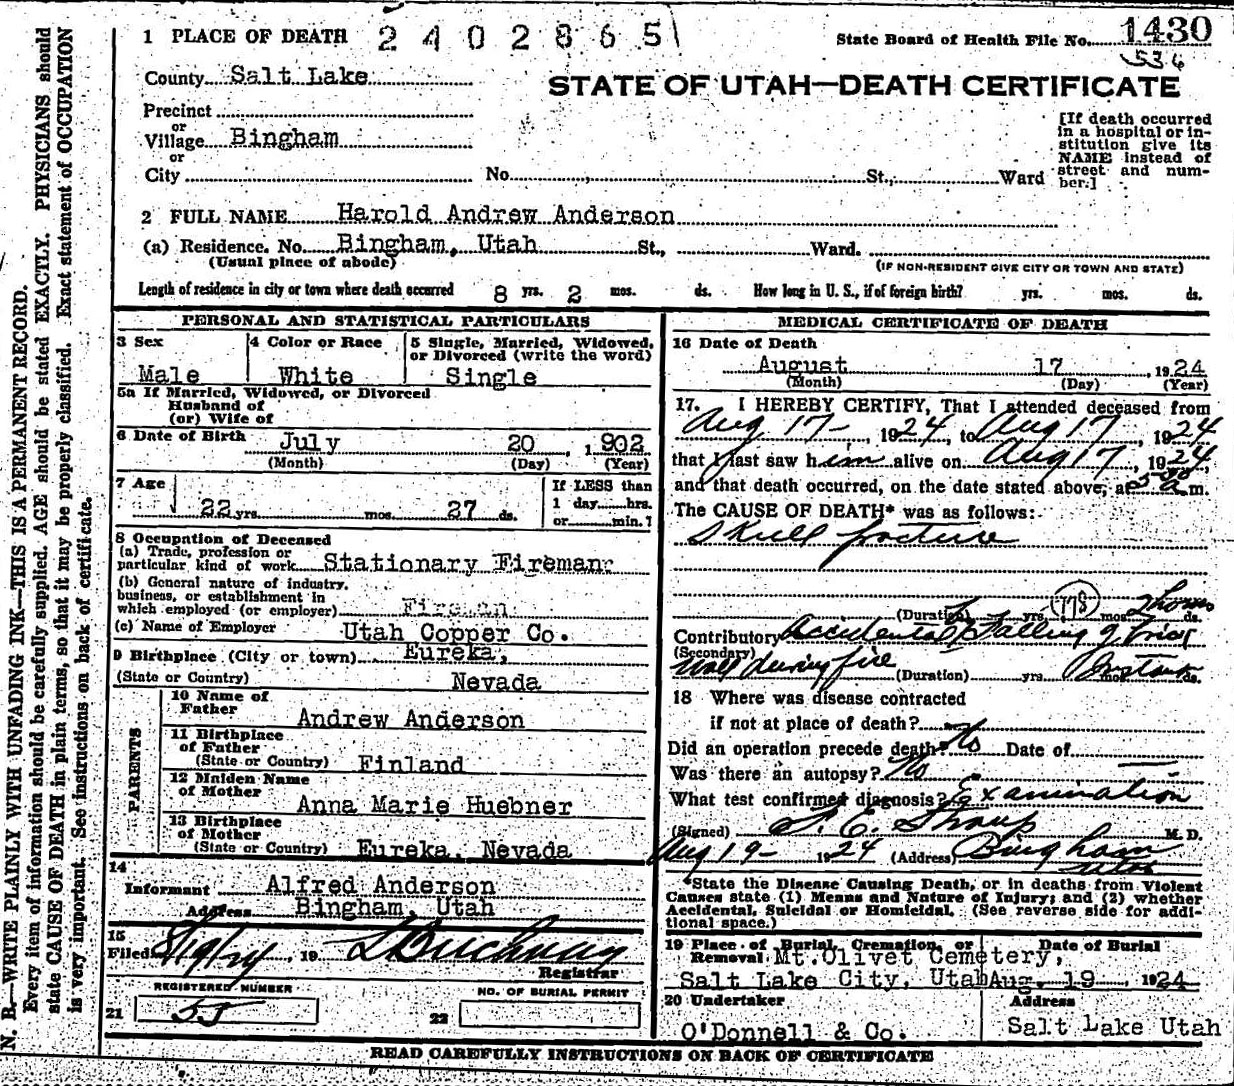 1 PLACE OF DEATH 2402865
State Board of Health File No. 1430
536
County Salt Lake
STATE OF UTAH—DEATH CERTIFICATE
Precinct
or
Village Bingham
or
City No. St., Ward
[If death occurred
in a hospital or in-
stitution give its
NAME instead of
street and num-
ber.]
2 FULL NAME Harold Andrew Anderson
(a) Residence. No. Bingham, Utah St., Ward.
(Usual place of abode)
(IF NON-RESIDENT GIVE CITY OR TOWN AND STATE)
Length of residence in city or town where death occurred 8 yrs. 2 mos. ds. How long in U. S., if of foreign birth? yrs. mos. ds.
PERSONAL AND STATISTICAL PARTICULARS
3 Sex
Male
4 Color or Race
White
5 Single, Married, Widowed,
or Divorced (write the word)
Single
5a If Married, Widowed, or Divorced
Husband of
(or) Wife of
6 Date of Birth July 20, 1902
(Month) (Day) (Year)
7 Age
22 yrs. mos. 27 ds.
If LESS than
1 day hrs.
or min.?
8 Occupation of Deceased
(a) Trade, profession or
particular kind of work Stationary Fireman
(b) General nature of industry,
business, or establishment in
which employed (or employer) Fireman
(c) Name of Employer Utah Copper Co.
9 Birthplace (City or town) Eureka,
(State or Country) Nevada
PARENTS
10 Name of
Father Andrew Anderson
11 Birthplace
of Father
(State or Country) Finland
12 Maiden Name
of Mother Anna Marie Huebner
13 Birthplace
of Mother
(State or Country) Eureka, Nevada
14
Informant Alfred Anderson
Address Bingham, Utah
15
Filed 8/19/24, 19
Registrar
REGISTERED NUMBER
21 55
NO. OF BURIAL PERMIT
22
MEDICAL CERTIFICATE OF DEATH
16 Date of Death
August 17, 1924
(Month) (Day) (Year)
17. I HEREBY CERTIFY, That I attended deceased from
Aug 17-, 1924, to Aug 17, 1924
that I last saw him alive on Aug 17, 1924,
and that death occurred, on the date stated above, at a m.
The CAUSE OF DEATH* was as follows:
Skull fracture
(Duration) yrs. mos. ds.
Contributory Accidental Falling of brick
(Secondary)
wall during fire (Duration) yrs. mos. ds.
18 Where was disease contracted
if not at place of death?
Did an operation precede death? No Date of
Was there an autopsy? No
What test confirmed diagnosis? Examination
(Signed) M. D.
Aug 19- 1924 (Address) Bingham
Utah
*State the Disease Causing Death, or in deaths from Violent
Causes state (1) Means and Nature of Injury; and (2) whether
Accidental, Suicidal or Homicidal. (See reverse side for addi-
tional space.)
19 Place of Burial, Cremation, or
Removal Mt. Olivet Cemetery,
Salt Lake City, Utah
Date of Burial
Aug. 19, 1924
20 Undertaker
O'Donnell & Co.
Address
Salt Lake Utah
READ CAREFULLY INSTRUCTIONS ON BACK OF CERTIFICATE
N. B.—WRITE PLAINLY WITH UNFADING INK—THIS IS A PERMANENT RECORD.
Every item of information should be carefully supplied. AGE should be stated EXACTLY. PHYSICIANS should
state CAUSE OF DEATH in plain terms, so that it may be properly classified. Exact statement of OCCUPATION
is very important. See instructions on back of certificate.